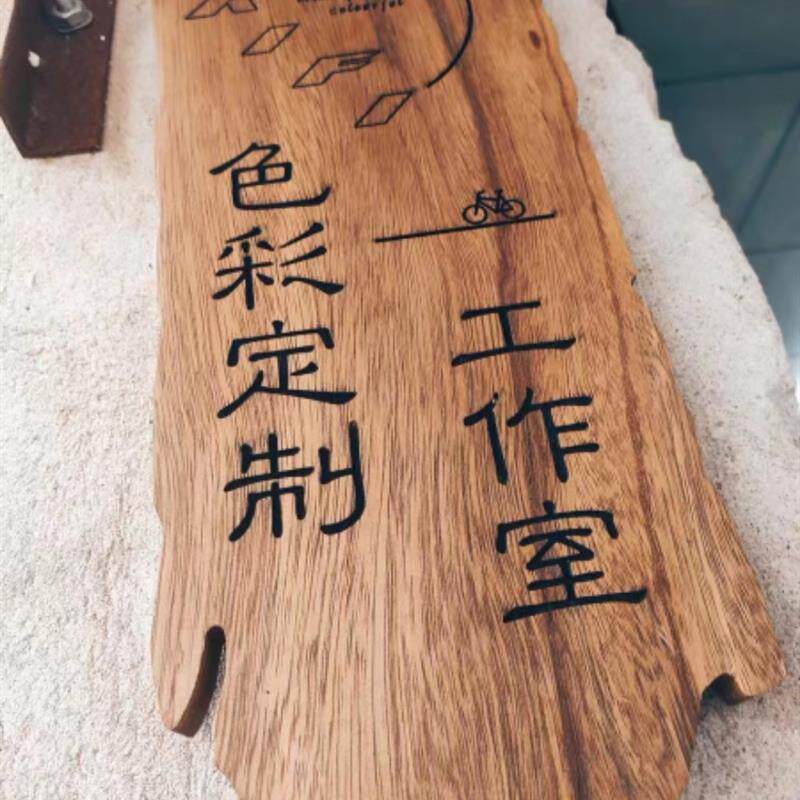 colourful
色彩定制
工作室